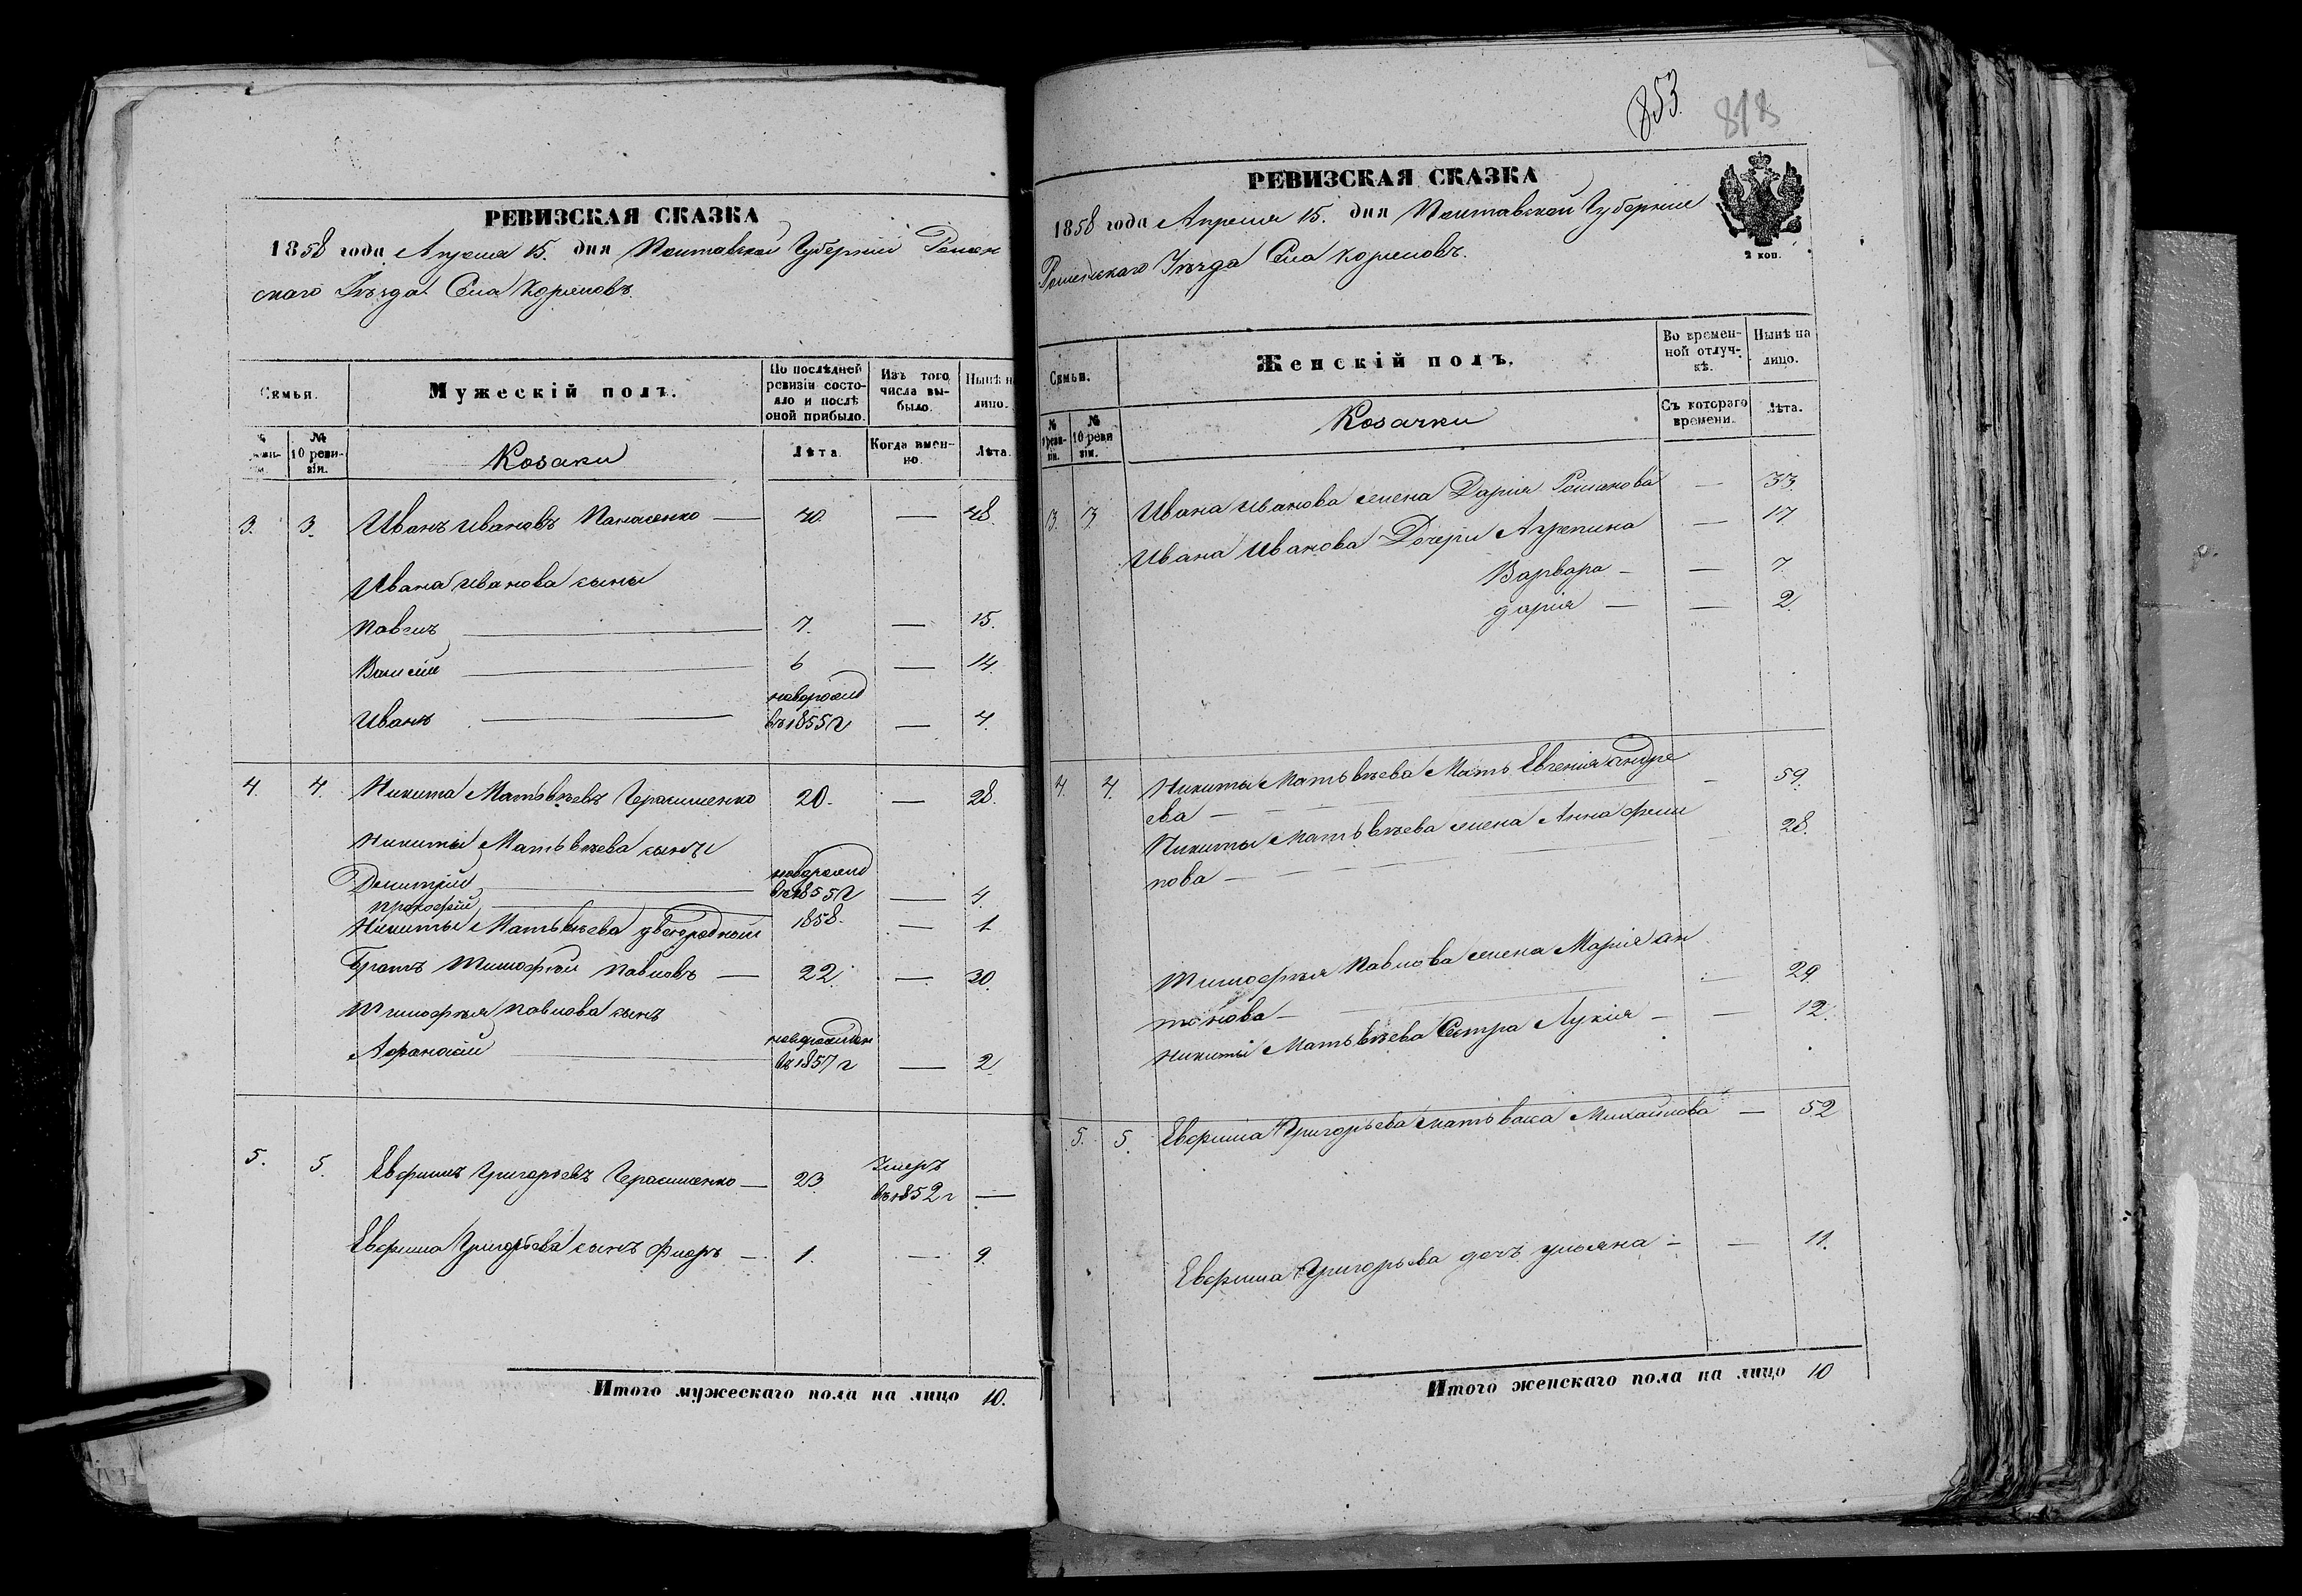 РЕВИЗСКАЯ СКАЗКА
1858 года Апреля 15. дня Полтавской Губернии Ромен
скаго Уѣзда Села Кореновъ.
Семья.
Мужескій полъ.
По послѣдней ревизіи состояло и послѣ оной прибыло.
Изъ того числа выбыло.
Ныне на лицо.
№ 10 ревизіи.
Козаки
Лѣта
Когда именно.
Лѣта.
3. 3. Иванъ Ивановъ Панасенко — 40. — 48.
Ивана Иванова сыны
Павелъ — 7. — 15.
Василій — 6 — 14.
новорожд
Иванъ — въ 1855 г — 4.
4. 4. Никита Матвѣевъ Герасименко 20. — 28.
Никиты Матьвѣева сынъ
новорожд
Дмитрій — въ 1855 г — 4.
Прокофій — 1858. — 1
Никиты Матьвѣева двоюродный
Братъ Тимофей Павловъ — 22. — 30.
Тимофѣя Павлова сынъ
новорожден
Афанасий — въ 1857 г — 2.
5. 5. Евфимъ Григорьевъ Герасименко — 23. Умеръ въ 1852 г —
Евфима Григорьева сынъ Флоръ — 1. — 9.
Итого мужескаго пола на лицо 10.
853. 818
РЕВИЗСКАЯ СКАЗКА
1858 года Апреля 15. дня Полтавской Губернии
Роменскаго Уѣзда Села Кореновъ.
2 коп.
Семьи.
Женскій полъ.
Во временной отлучкѣ.
Нынѣ на лицо.
№ ревизіи.
№ 10 ревизіи.
Козачки
Съ котораго времени.
Лѣта.
3. 3. Ивана Иванова жена Дарія Романова — 33.
Ивана Иванова Дочери Агрепина — 17
Варвара — — 7
дарія — — 2.
4. 4. Никиты Матьвѣева Мать Евгенія андре
ева — — 59.
Никиты Матьвѣева жена Анна фили
пова — 28.
Тимофѣя Павлова жена Марія ан
тонова — — 29.
Никиты Матьвѣева Сестра Лукія — — 12.
5. 5. Евфима Григорьева мать Васа Михайлова — 52
Евфима Григорьева дочъ ульяна — — 11.
Итого женскаго пола на лицо 10